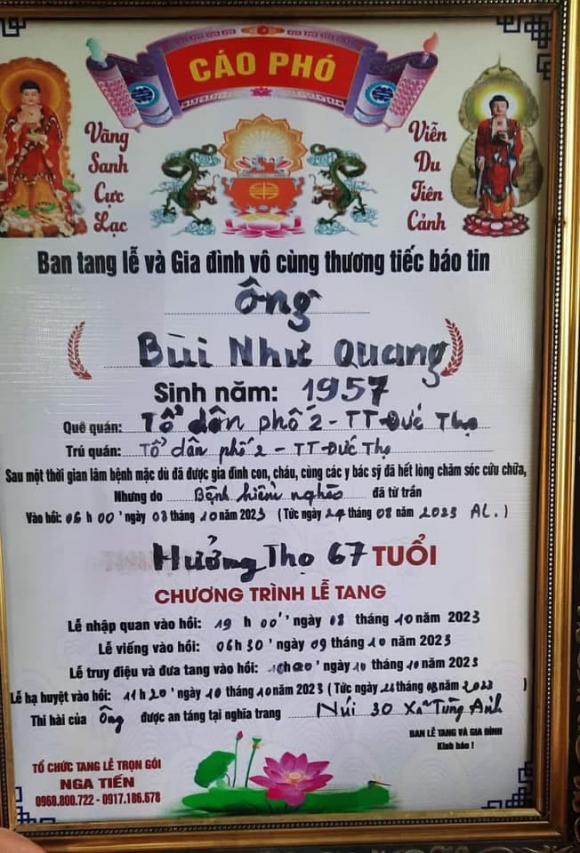 CÁO PHÓ
Vãng
Sanh
Cực
Lạc
Viễn
Du
Tiên
Cảnh
Ban tang lễ và Gia đình vô cùng thương tiếc báo tin
Ông
Bùi Như Quang
Sinh năm: 1957
Quê quán: Tổ dân phố 2 - TT - Đức Thọ
Trú quán: Tổ dân phố 2 - TT - Đức Thọ
Sau một thời gian lâm bệnh mặc dù đã được gia đình con, cháu, cùng các y bác sỹ đã hết lòng chăm sóc cứu chữa,
Nhưng do Bệnh hiểm nghèo đã từ trần
Vào hồi: 06 h 00' ngày 08 tháng 10 năm 2023 (Tức ngày 24 tháng 08 năm 2023 AL.)
Hưởng Thọ 67 TUỔI
CHƯƠNG TRÌNH LỄ TANG
Lễ nhập quan vào hồi: 19 h 00' ngày 08 tháng 10 năm 2023
Lễ viếng vào hồi: 06 h 30' ngày 09 tháng 10 năm 2023
Lễ truy điệu và đưa tang vào hồi: h 20' ngày 10 tháng 10 năm 2023
Lễ hạ huyệt vào hồi: 11 h 20' ngày 10 tháng 10 năm 2023 (Tức ngày tháng 08 năm 2023 )
Thi hài của Ông được an táng tại nghĩa trang Núi 30 Xã Tùng Ảnh
BAN LỄ TANG VÀ GIA ĐÌNH
Kính báo !
TỔ CHỨC TANG LỄ TRỌN GÓI
NGA TIẾN
0968.800.722 - 0917.186.678